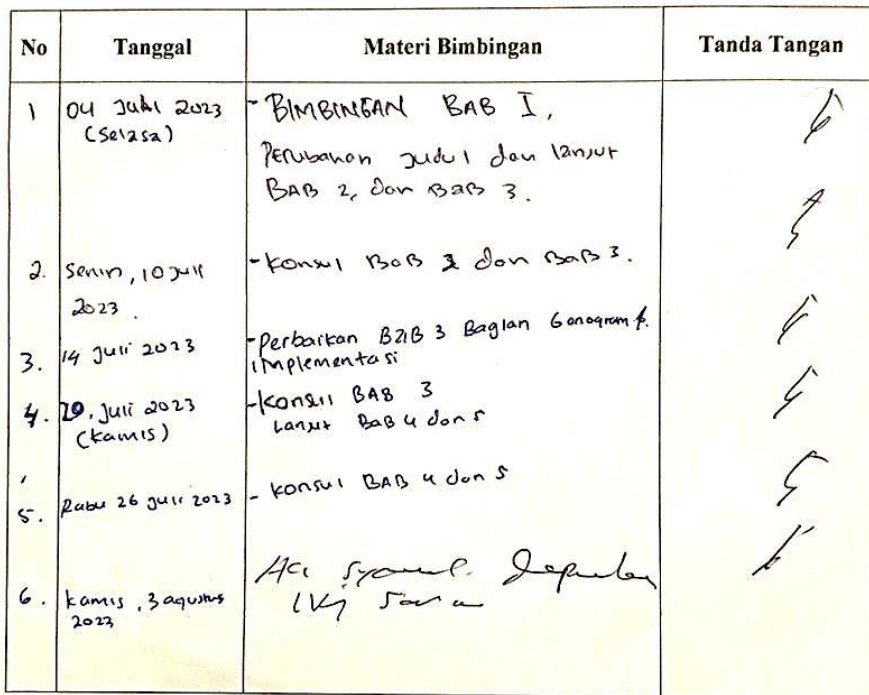 No Tanggal Materi Bimbingan Tanda Tangan
1 04 Juli 2023 - BIMBINGAN BAB I,
(Selasa)
Perubahan Judul dan lanjut
BAB 2, dan BAB 3.
2. Senin, 10 Juli - Konsul BAB 2 dan BAB 3.
2023.
3. 14 Juli 2023 - Perbaikan BAB 3 Bagian Genogram
implementasi
4. Juli 2023 - Konsul BAB 3
(Kamis) Lanjut BAB 4 dan 5
5. Rabu 26 Juli 2023 - Konsul BAB 4 dan 5
6. Kamis, 3 agustus
2023